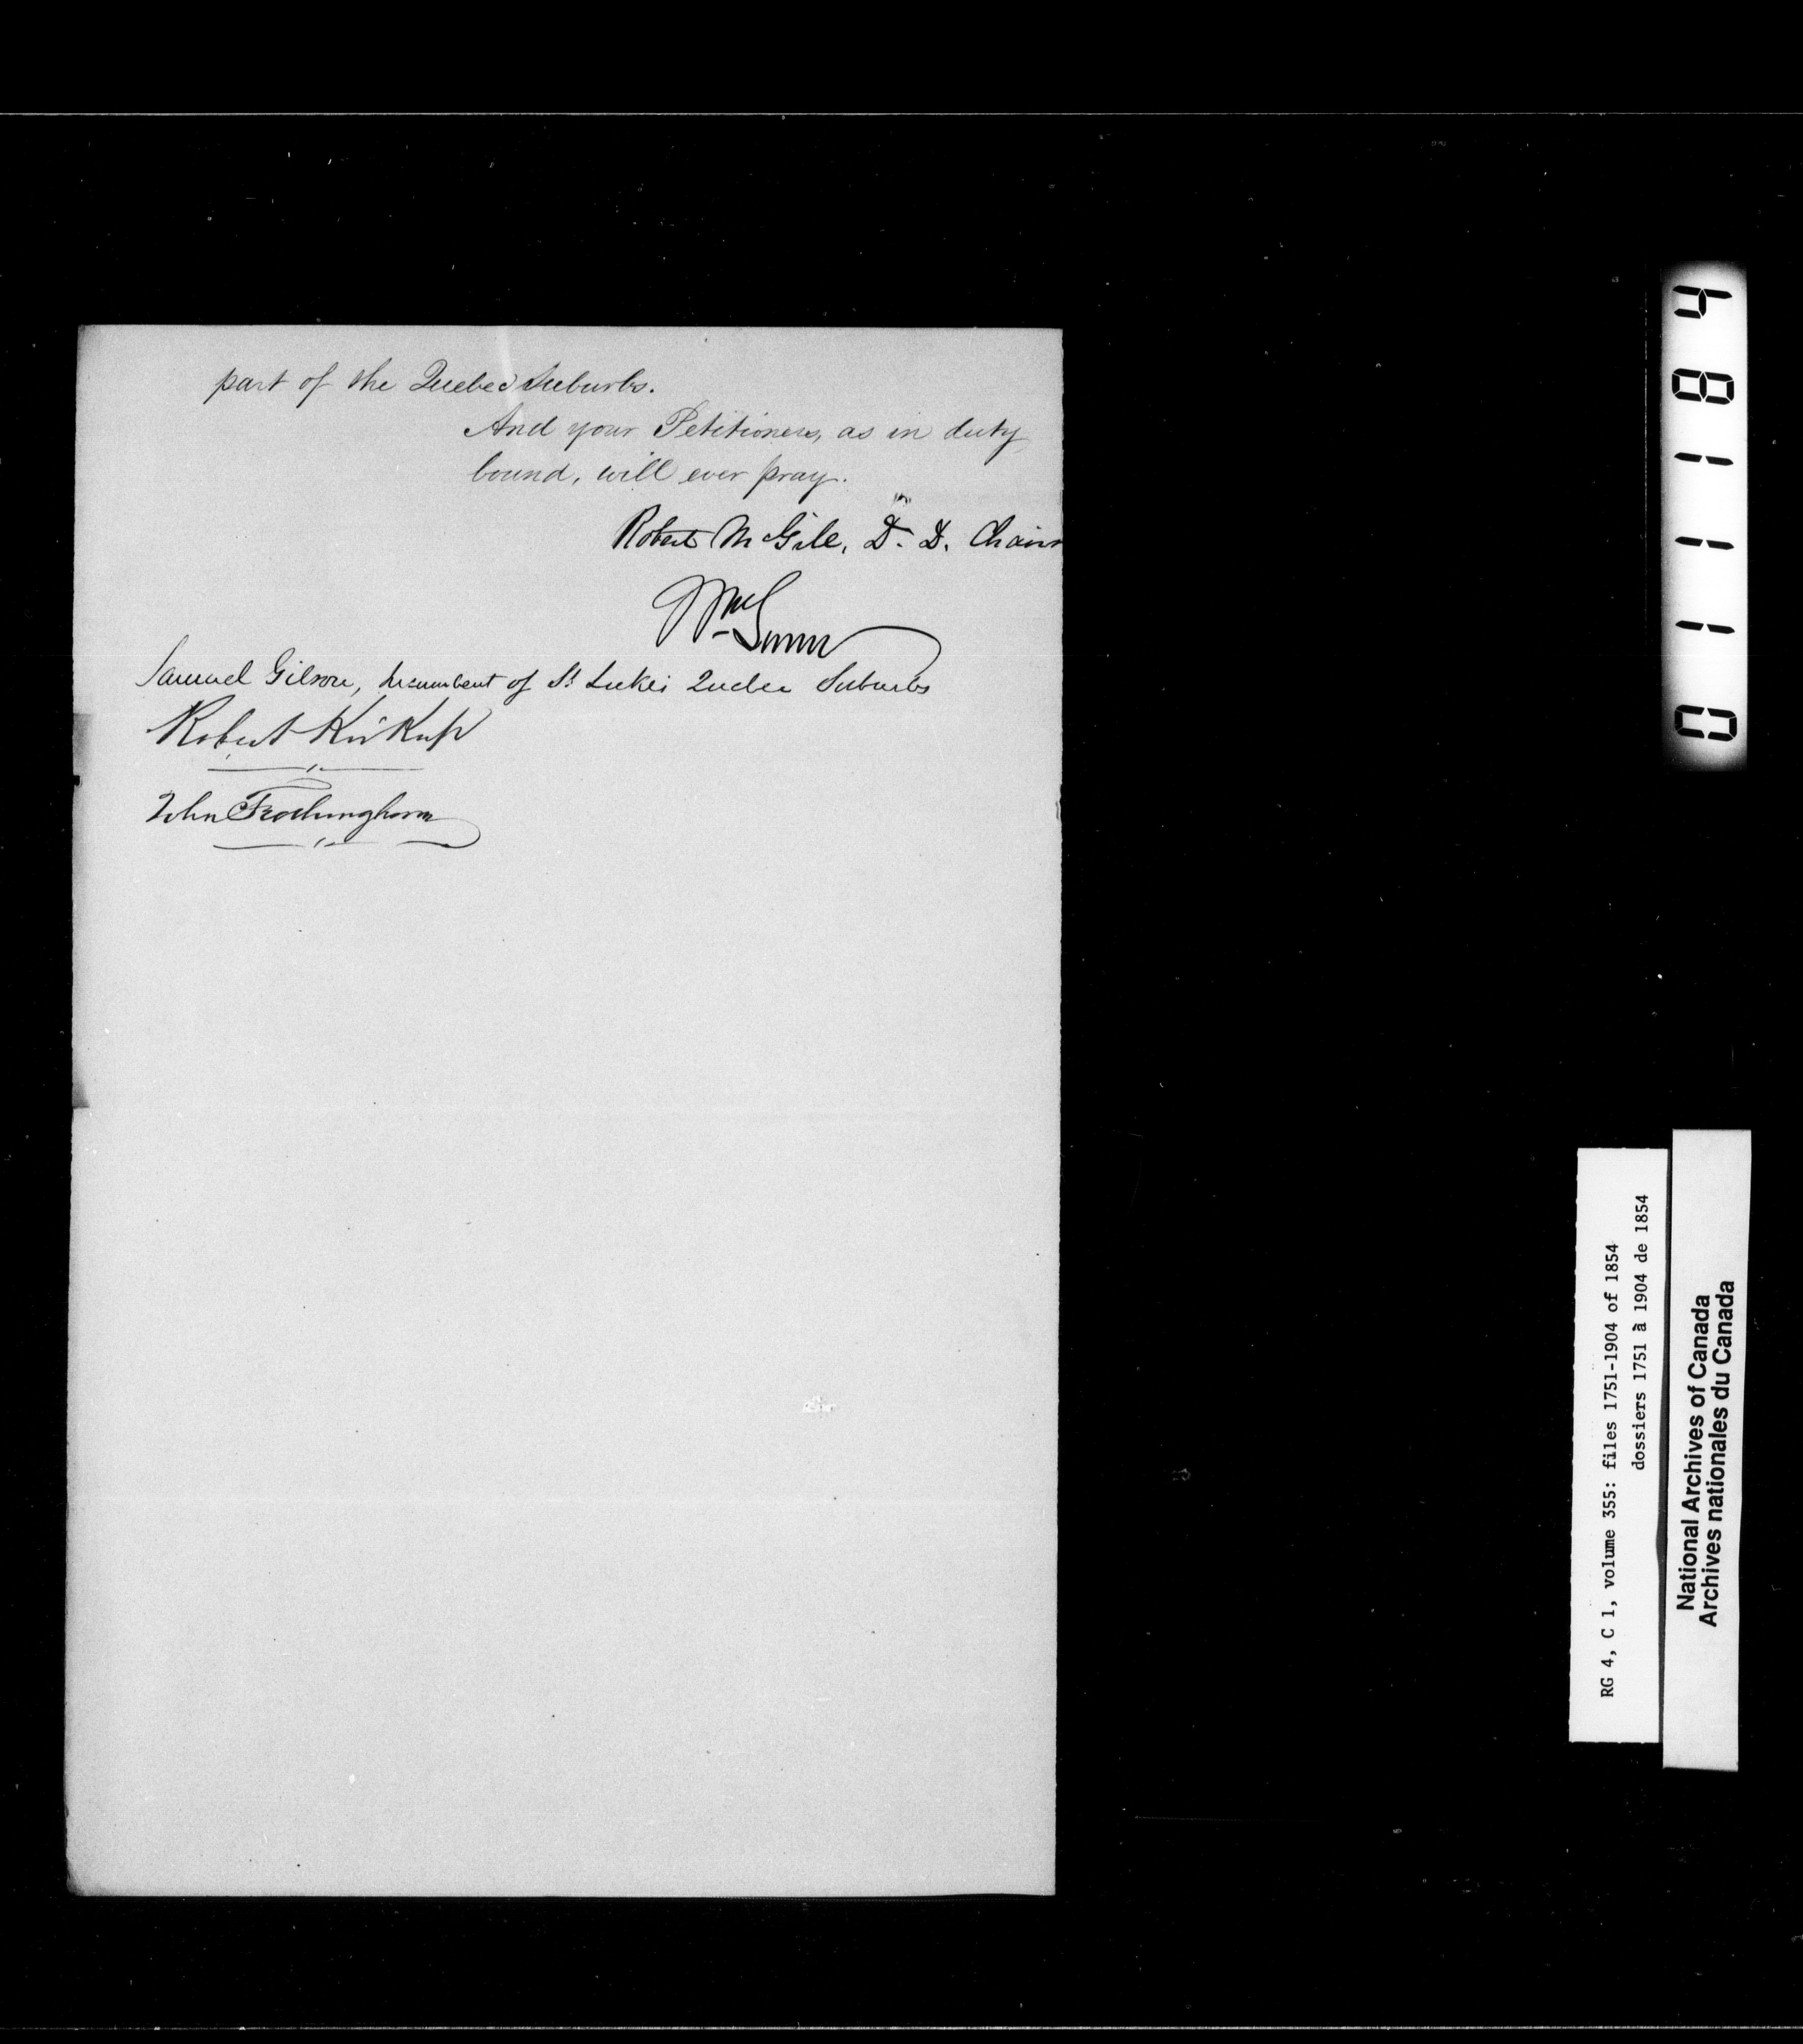 part of the Quebec Suburbs.
And your Petitioners, as in duty
bound, will ever pray.
Robert McGill, D. D. Chair
Wm Lunn
Samuel Gilson, Incumbent of St Lukes Quebec Suburbs
Robert Kirkup
John Frothingham
011184
RG 4, C 1, volume 355: files 1751-1904 of 1854
dossiers 1751 à 1904 de 1854
National Archives of Canada
Archives nationales du Canada